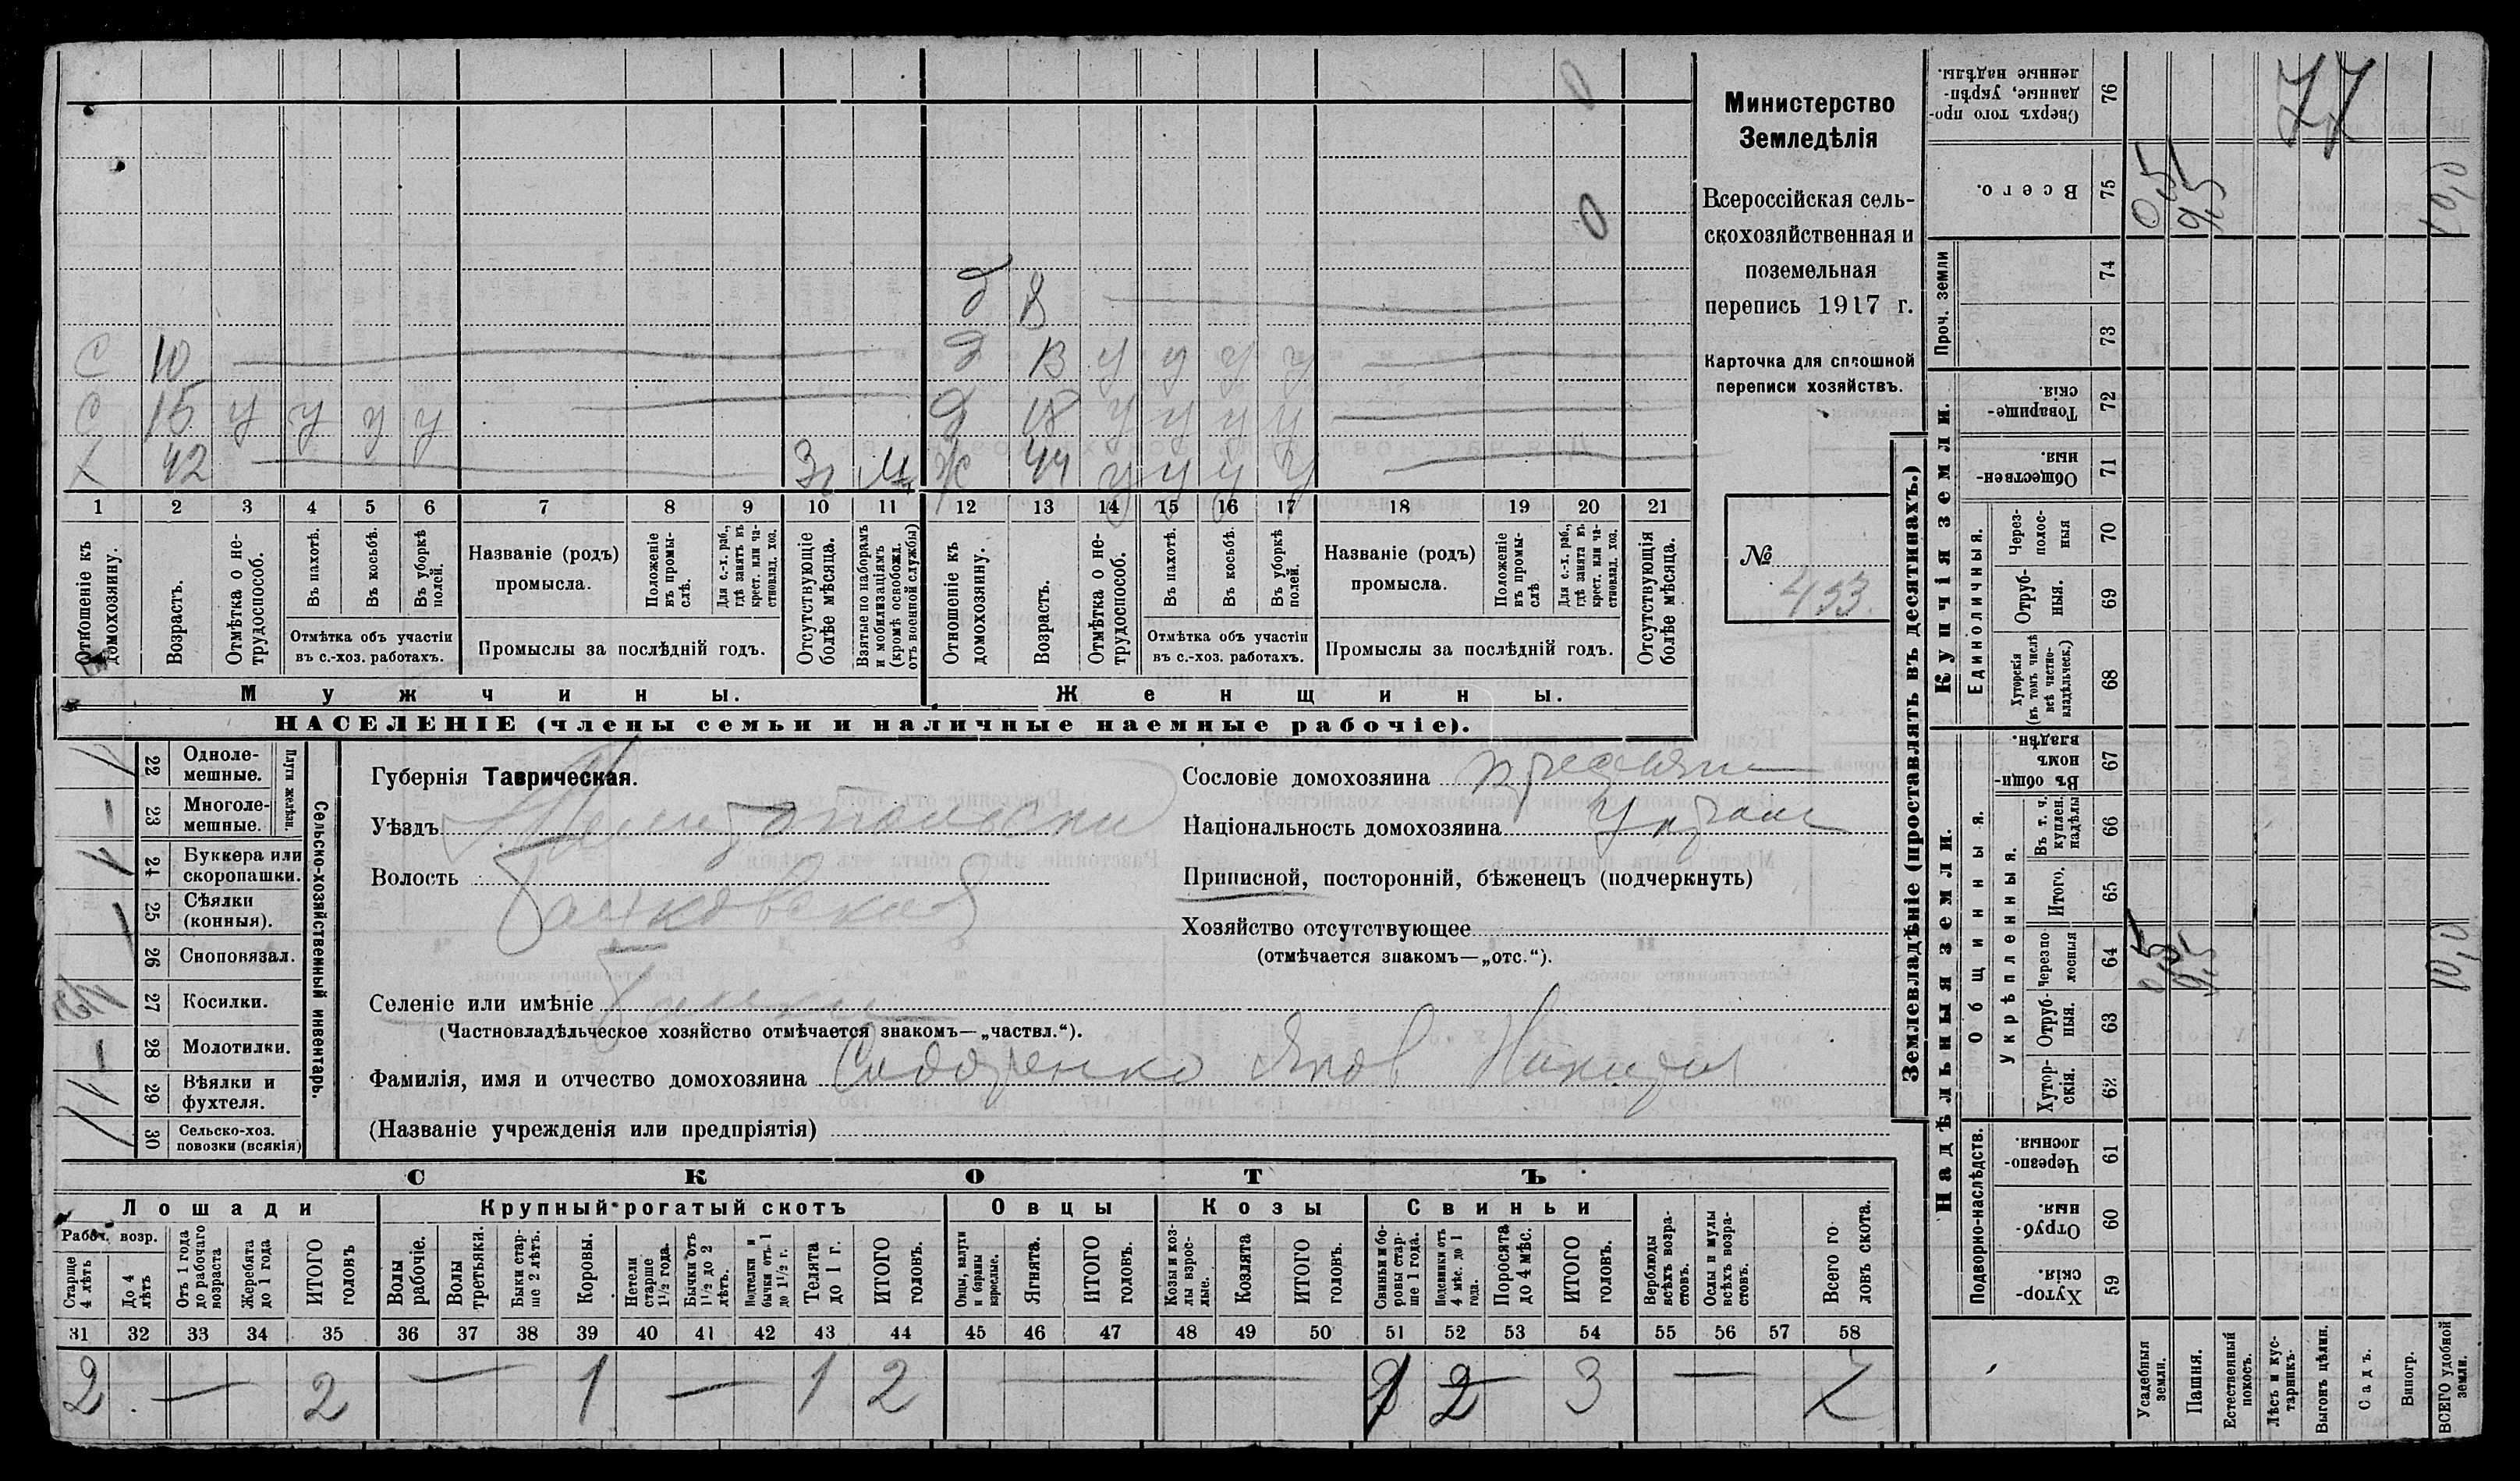 Министерство
Земледѣлія
Всероссійская сель-
скохозяйственная и
поземельная
перепись 1917 г.
Карточка для сплошной
переписи хозяйствъ.
№
433.
0
0
д 8
С 10
д 13 у у у у
С 15 у у у у
д 18 у у у у
Х 42
М
Ж 44 у у у у
1 2 3 4 5 6 7 8 9 10 11 12 13 14 15 16 17 18 19 20 21
Отношеніе къ домохозяину.
Возрастъ.
Отмѣтка о не-трудоспособ.
Въ пахотѣ.
Въ косьбѣ.
Въ уборкѣ полей.
Отмѣтка объ участіи
въ с.-хоз. работахъ.
Названіе (родъ)
промысла.
Положеніе въ промы-слѣ.
Для с.-х. раб., гдѣ занятъ въ крест. или ча-стновлад. хоз.
Промыслы за послѣдній годъ.
Отсутствующіе болѣе мѣсяца.
Взятые по наборамъ и мобилизаціямъ (кромѣ освобожд. отъ военной службы)
Отношеніе къ домохозяину.
Возрастъ.
Отмѣтка о не-трудоспособ.
Въ пахотѣ.
Въ косьбѣ.
Въ уборкѣ полей.
Отмѣтка объ участіи
въ с.-хоз. работахъ.
Названіе (родъ)
промысла.
Положеніе въ промы-слѣ
Для с.-х. раб., гдѣ занята въ крест. или ча-стновлад. хоз.
Промыслы за послѣдній годъ.
Отсутствующія болѣе мѣсяца.
Мужчины.
Женщины.
НАСЕЛЕНІЕ (члены семьи и наличные наемные рабочіе).
Сельско-хозяйственный инвентарь.
Плуги желѣзн.
22 Одноле-мешные. 1
23 Многоле-мешные. –
24 Буккера или скоропашки. 1
25 Сѣялки (конныя). –
26 Сноповязал.
27 Косилки.
28 Молотилки. –
29 Вѣялки и фухтеля. 1
30 Сельско-хоз. повозки (всякія) 1
Губернія Таврическая.
Уѣздъ Мелитопольски
Волость Балковская
Селеніе или имѣніе Балки
(Частновладѣльческое хозяйство отмѣчается знакомъ—„частвл.“).
Фамилія, имя и отчество домохозяина Сидоренко Яков Никиф
(Названіе учрежденія или предпріятія)
Сословіе домохозяина
Національность домохозяина Украи
Приписной, посторонній, бѣженецъ (подчеркнуть)
Хозяйство отсутствующее
(отмѣчается знакомъ—„отс.“).
СКОТЪ
Лошади
Крупный рогатый скотъ
Овцы
Козы
Свиньи
Рабоч. возр.
Старше 4 лѣтъ
До 4 лѣтъ
Отъ 1 года до рабочаго возраста
Жеребята до 1 года
ИТОГО головъ
Волы рабочіе.
Волы третьяки.
Быки стар-ше 2 лѣтъ.
Коровы.
Нетели старше 1½ года.
Бычки отъ 1½ до 2 лѣтъ.
Подтелки и бычки отъ 1 до 1½ г.
Телята до 1 г.
ИТОГО головъ.
Овцы, валухи и бараны взрослые.
Ягнята.
ИТОГО головъ.
Козы и коз-лы взрос-лые.
Козлята
ИТОГО головъ.
Свиньи и бо-ровы стар-ше 1 года.
Подсвинки отъ 4 мѣс. до 1 года.
Поросята до 4 мѣс.
ИТОГО головъ.
Верблюды всѣхъ возра-стовъ.
Ослы и мулы всѣхъ возра-стовъ.
Всего го-ловъ скота.
31 32 33 34 35 36 37 38 39 40 41 42 43 44 45 46 47 48 49 50 51 52 53 54 55 56 57 58
2 — 2 — 1 — 1 2 — 1 2 — 3 — 7
Землевладѣніе (проставлять въ десятинахъ.)
Надѣльныя земли.
Купчія земли.
Проч. земли
Подворно-наслѣдств.
Общинныя.
Укрѣпленныя.
Единоличныя.
76 Сверхъ того про-данные, укрѣп-ленные надѣлы.
77
75 Всего. 0,5 9,5 10,0
74
73
72 Товарище-скія.
71 Обществен-ныя.
70 Через-полос-ныя
69 Отруб-ныя.
68 Хуторскія (въ томъ числѣ всѣ частно-владѣльческ.)
67 Въ общи-номъ владѣн.
66 Въ т. ч. куплен. надѣлы
65 Итого.
64 Черезпо-лосныя 0,5 9,5 10,0
63 Отруб-ныя.
62 Хутор-скія.
61 Черезпо-лосныя.
60 Отруб-ныя.
59 Хутор-скія.
Усадебныя земли.
Пашня.
Естественный покосъ.
Лѣсъ и кус-тарникъ.
Выгонъ цѣлин.
Садъ.
Виногр.
ВСЕГО удобной земли.